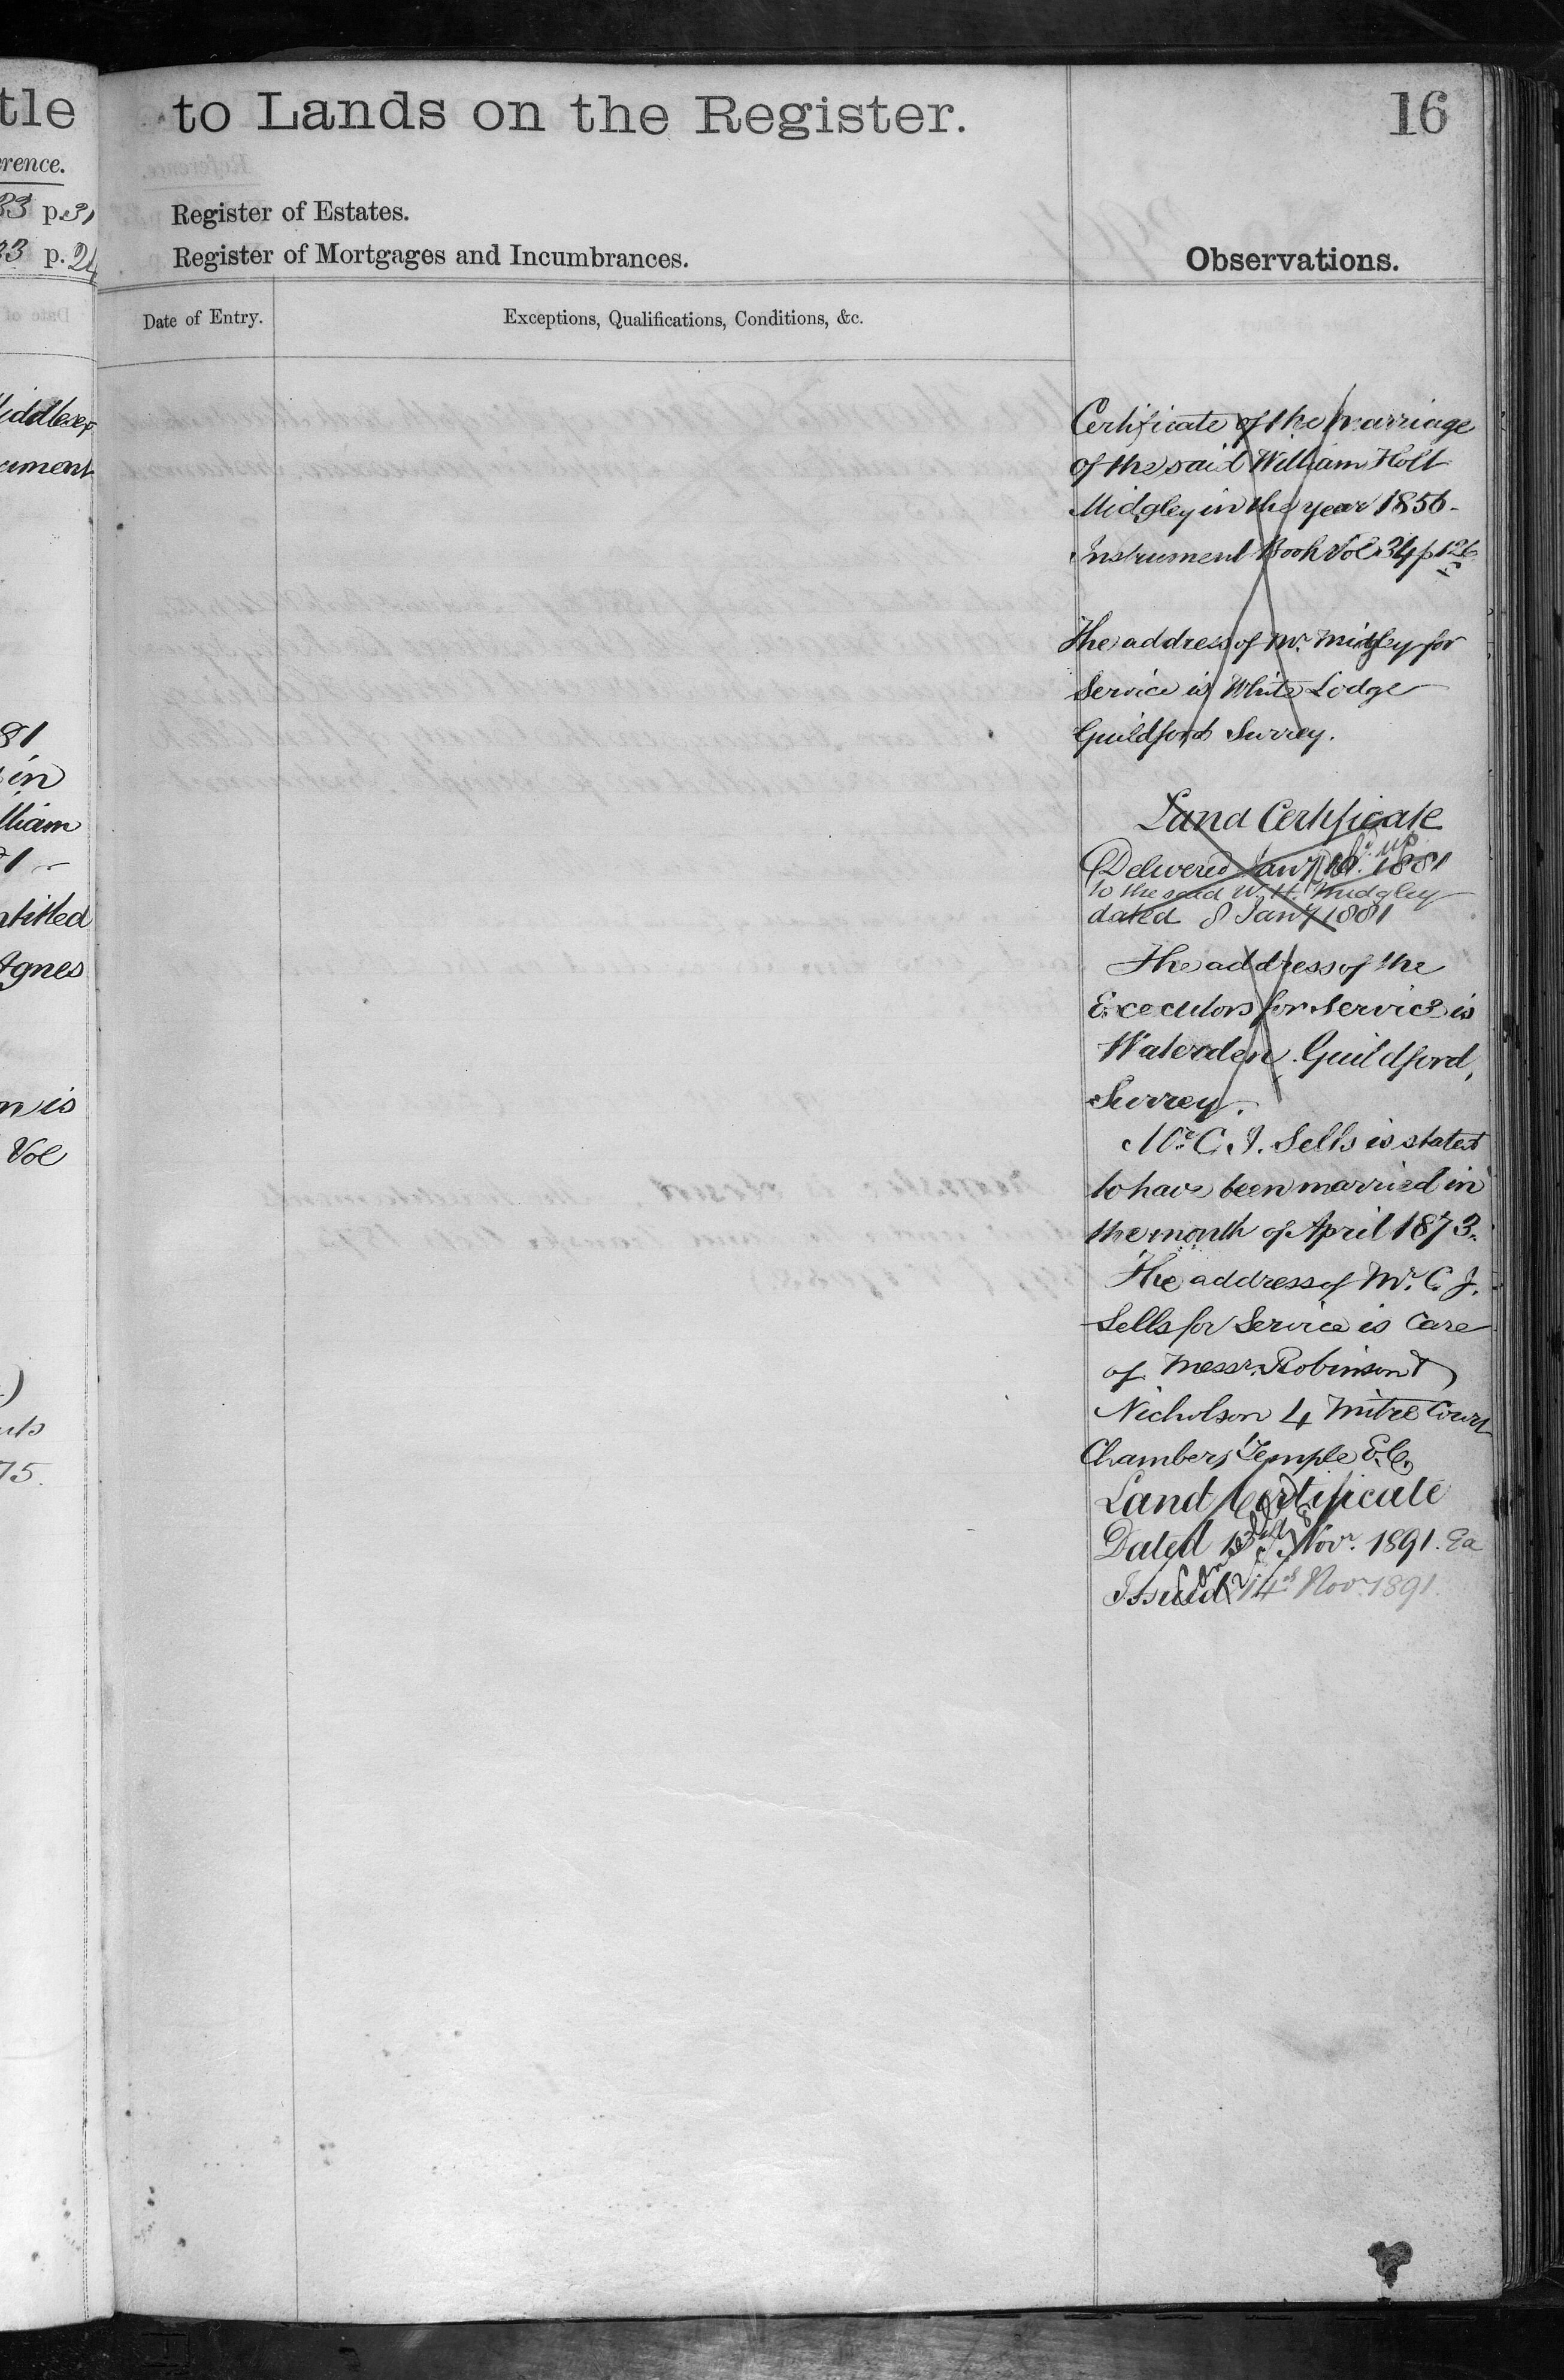 tle
to Lands on the Register.
16
rence.
33 p. 31
33 p. 24
Register of Estates.
Register of Mortgages and Incumbrances.
Observations.
Date of Entry.
Exceptions, Qualifications, Conditions, &c.
Middlesex
ument
81
in
lliam
1
ntitled
Agnes
n is
Vol
75.
Certificate of the marriage
of the said William Holt
Midgley in the year 1856.
Instrument Book Vol 34 p 126
The address of Mr. Midgley for
Service is White Lodge
Guildford Surrey.
Land Certificate
Delivered Jany 10. 1881
to the said W. H. Midgley
dated 8 Jany 1881
The address of the
Executors for Service is
Waterden Guildford,
Surrey.
Mr. C. J. Sells is stated
to have been married in
the month of April 1873.
The address of Mr. C. J.
Sells for Service is Care
of Messrs. Robinson &
Nicholson 4 Mitre Court
Chambers Temple E.C.
Land Certificate
Dated Novr. 1891.
Issued 14th Novr 1891.